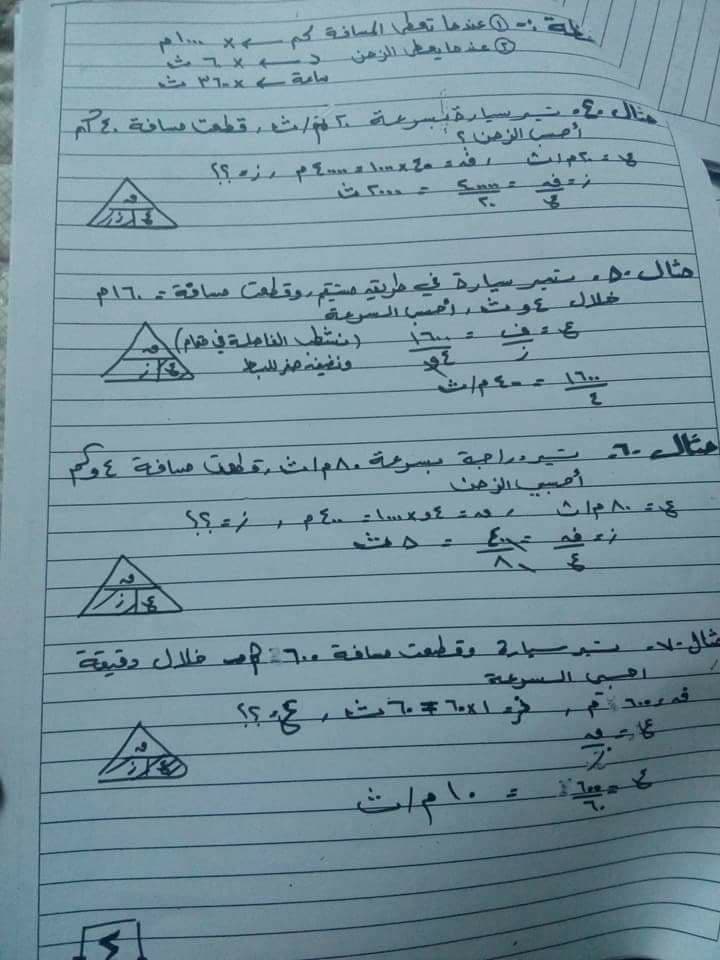 ـظة :- ① عندما تعطى المسافة كم ← × ١٠٠٠ م
② عندما يعطى الزمن د ← × ٦٠ ث
ساعة ← × ٣٦٠٠ ث
مثال ٤- تسير سيارة بسرعة ٢٠ م/ث , قطعت مسافة ٤٠ كم
أحسب الزمن ؟
ع = ٢٠ م/ث , ف = ٤٠ × ١٠٠٠ = ٤٠٠٠٠ م , ز = ؟؟
ز = ف/ع = ٤٠٠٠٠/٢٠ = ٢٠٠٠ ث
ف
ز ع
مثال ٥- تسير سيارة في طريق مستقيم , وقطعت مسافة = ١٦٠ م
خلال ٤و ث , أحسب السرعة
ع = ف/ز = ١٦٠٠/٤و (نشطب الفاصلة في المقام)
ونضيف صفر للبسط
١٦٠٠/٤ = ٤٠٠ م/ث
ف
ز ع
مثال ٦- تسير دراجة بسرعة ٨٠ م/ث , قطعت مسافة ٤و كم
أحسبي الزمن
ع = ٨٠ م/ث , ف = ٤و × ١٠٠٠ = ٤٠٠ م , ز = ؟؟
ز = ف/ع = ٤٠٠/٨٠ = ٥ ث
ف
ز ع
مثال ٧- تسير سيارة وقطعت مسافة ٦٠٠ م خلال دقيقة
احسبي السرعة
ف = ٦٠٠ م , ز = ١ × ٦٠ = ٦٠ ث , ع = ؟؟
ع = ف/ز
ف
ز ع
ع = ٦٠٠/٦٠ = ١٠ م/ث
٤